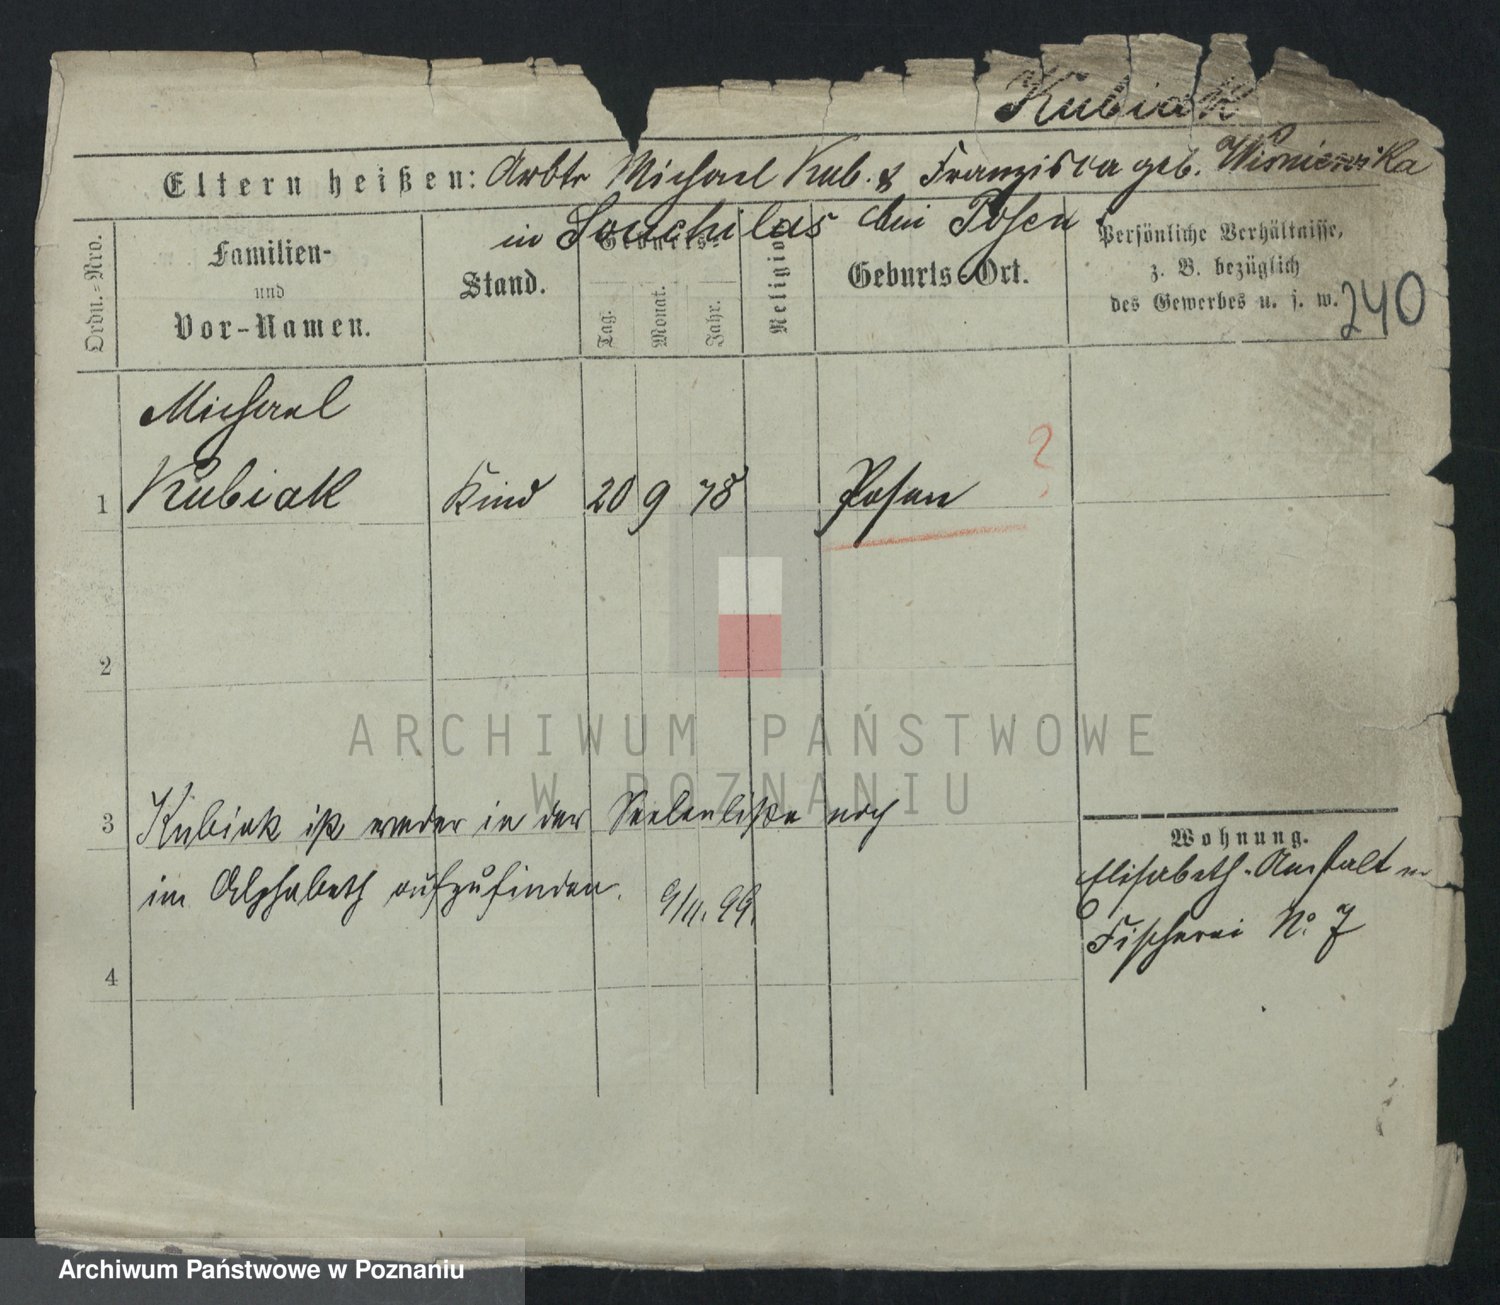 Kubiak
Eltern heißen: Arbtr Michael Kub. & Franziska geb. Wisniewska
in bei Posen
Ordn.-Nro.
Familien-
und
Vor-Namen.
Stand.
Geburts-
Tag.
Monat.
Jahr.
Religion
Geburts-Ort.
Persönliche Verhältnisse,
z. B. bezüglich
des Gewerbes u. s. w.
240
Michael
1 Kubiak Kind 20 9 78 Posen
?
2
ARCHIWUM PAŃSTWOWE
W POZNANIU
3 Kubiak ist weder in der Seelenliste noch
im Alphabeth aufzufinden. 9/11. 99.
4
Wohnung.
Elisabeth-Anstalt
Fischerei No 7
Archiwum Państwowe w Poznaniu